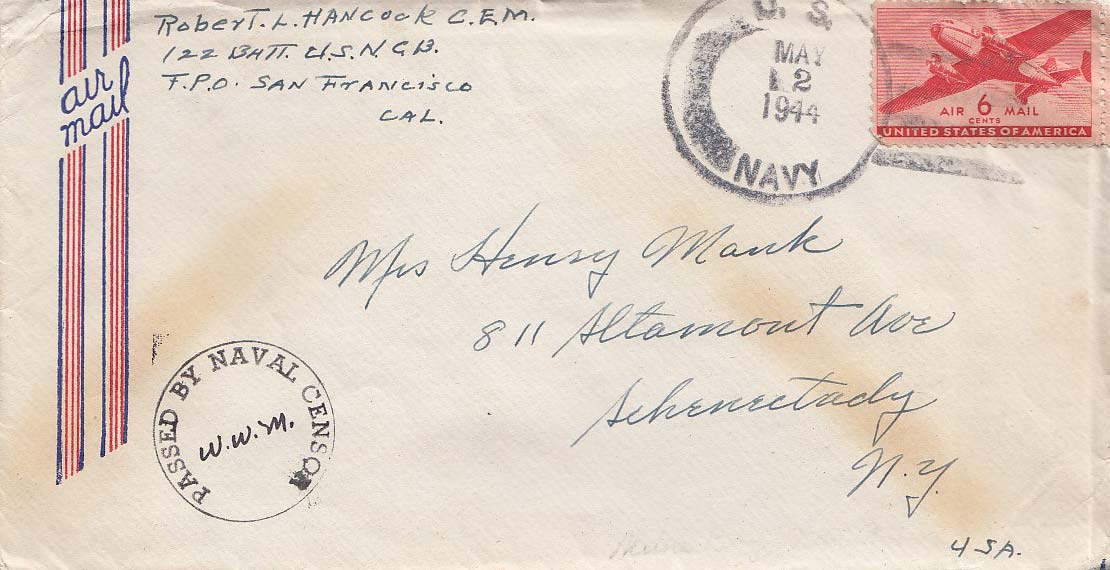 Robert. L. HANCOCK C.E.M.
122 BATT. U.S.N.C.B.
F.P.O. SAN FrANCisco
CAL.
air
mail
U. S.
MAY
12
1944
NAVY
AIR 6 MAIL
CENTS
UNITED STATES OF AMERICA
Mrs Henry Mank
811 Altamont Ave
Schenectady
N.Y.
USA.
PASSED BY NAVAL CENSOR
W.W.M.